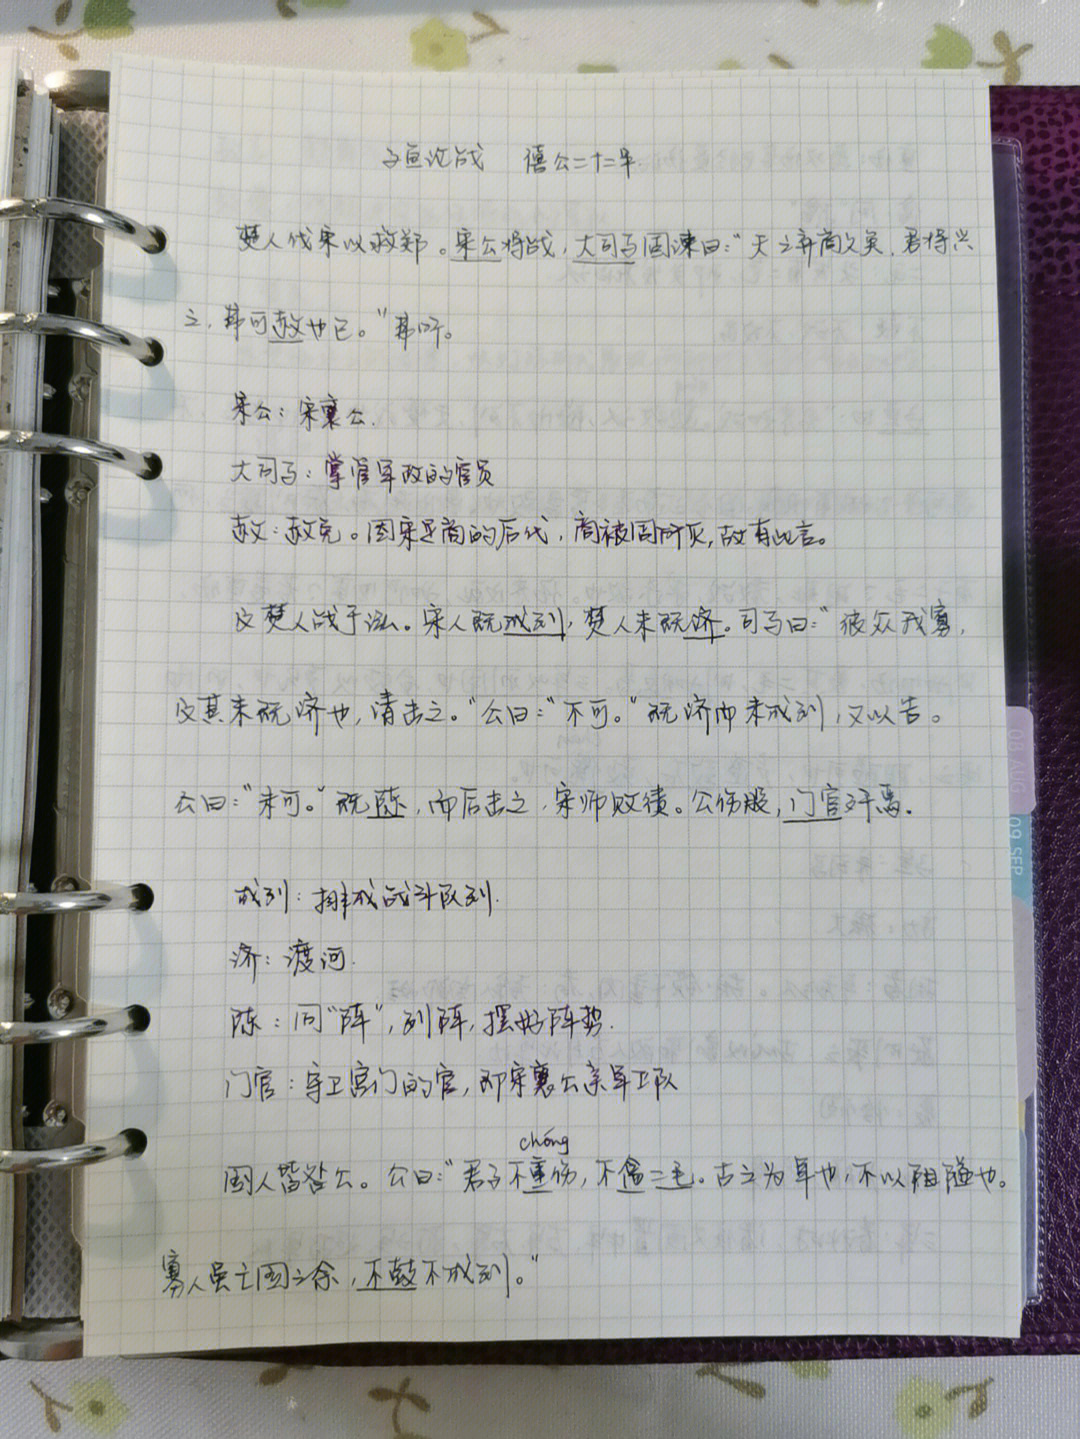 子鱼论战 僖公二十二年
楚人伐宋以救郑。宋公将战，大司马固谏曰："天之弃商久矣，君将兴
之，弗可赦也已。"弗听。
宋公：宋襄公.
大司马：掌管军政的官员
赦：赦免。因宋是商的后代，商被周所灭，故有此言。
及楚人战于泓。宋人既成列，楚人未既济。司马曰："彼众我寡，
及其未既济也，请击之。"公曰："不可。"既济而未成列，又以告。
公曰："未可。"既陈，而后击之，宋师败绩。公伤股，门官歼焉.
成列：排成战斗队列.
济：渡河.
陈：同"阵"，列阵，摆好阵势.
门官：守卫宫门的官，即宋襄公亲军卫队
chóng
国人皆咎公。公曰："君子不重伤，不禽二毛。古之为军也，不以阻隘也。
寡人虽亡国之余，不鼓不成列。"
08 AUG
09 SEP